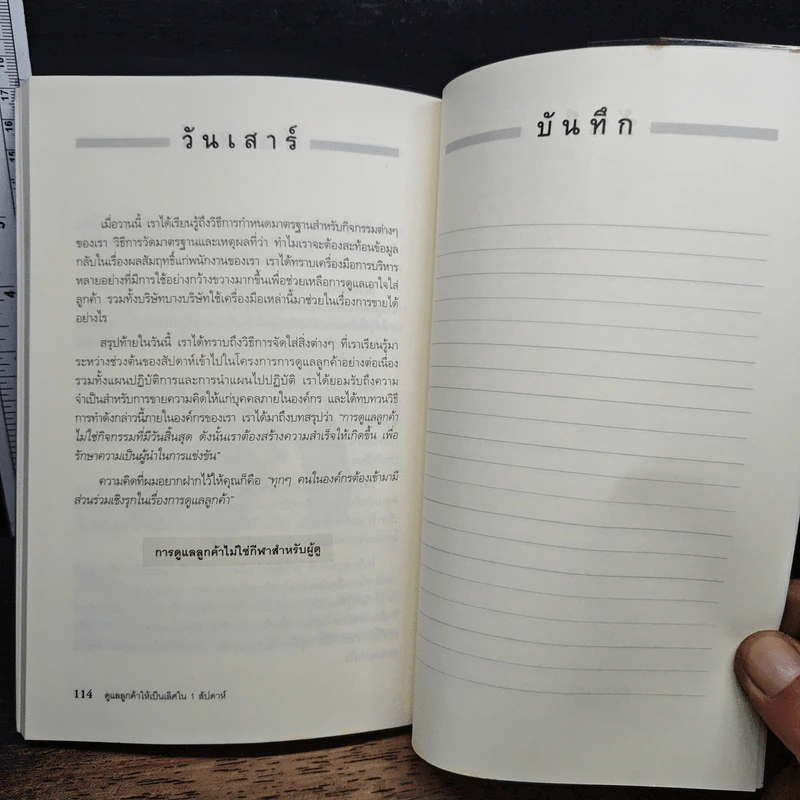 วันเสาร์
เมื่อวานนี้ เราได้เรียนรู้ถึงวิธีการกำหนดมาตรฐานสำหรับกิจกรรมต่างๆ
ของเรา วิธีการวัดมาตรฐานและเหตุผลที่ว่า ทำไมเราจะต้องสะท้อนข้อมูล
กลับในเรื่องผลสัมฤทธิ์แก่พนักงานของเรา เราได้ทราบเครื่องมือการบริหาร
หลายอย่างที่มีการใช้อย่างกว้างขวางมากขึ้นเพื่อช่วยเหลือการดูแลเอาใจใส่
ลูกค้า รวมทั้งบริษัทบางบริษัทใช้เครื่องมือเหล่านี้มาช่วยในเรื่องการขายได้
อย่างไร
สรุปท้ายในวันนี้ เราได้ทราบถึงวิธีการจัดใส่สิ่งต่างๆ ที่เราเรียนรู้มา
ระหว่างช่วงต้นของสัปดาห์เข้าไปในโครงการการดูแลลูกค้าอย่างต่อเนื่อง
รวมทั้งแผนปฏิบัติการและการนำแผนไปปฏิบัติ เราได้ยอมรับถึงความ
จำเป็นสำหรับการขายความคิดให้แก่บุคคลภายในองค์กร และได้ทบทวนวิธี
การทำดังกล่าวนี้ภายในองค์กรของเรา เราได้มาถึงบทสรุปว่า "การดูแลลูกค้า
ไม่ใช่กิจกรรมที่มีวันสิ้นสุด ดังนั้นเราต้องสร้างความสำเร็จให้เกิดขึ้น เพื่อ
รักษาความเป็นผู้นำในการแข่งขัน"
ความคิดที่ผมอยากฝากไว้ให้คุณก็คือ "ทุกๆ คนในองค์กรต้องเข้ามามี
ส่วนร่วมเชิงรุกในเรื่องการดูแลลูกค้า"
การดูแลลูกค้าไม่ใช่กีฬาสำหรับผู้ดู
114 ดูแลลูกค้าให้เป็นเลิศใน 1 สัปดาห์
บันทึก